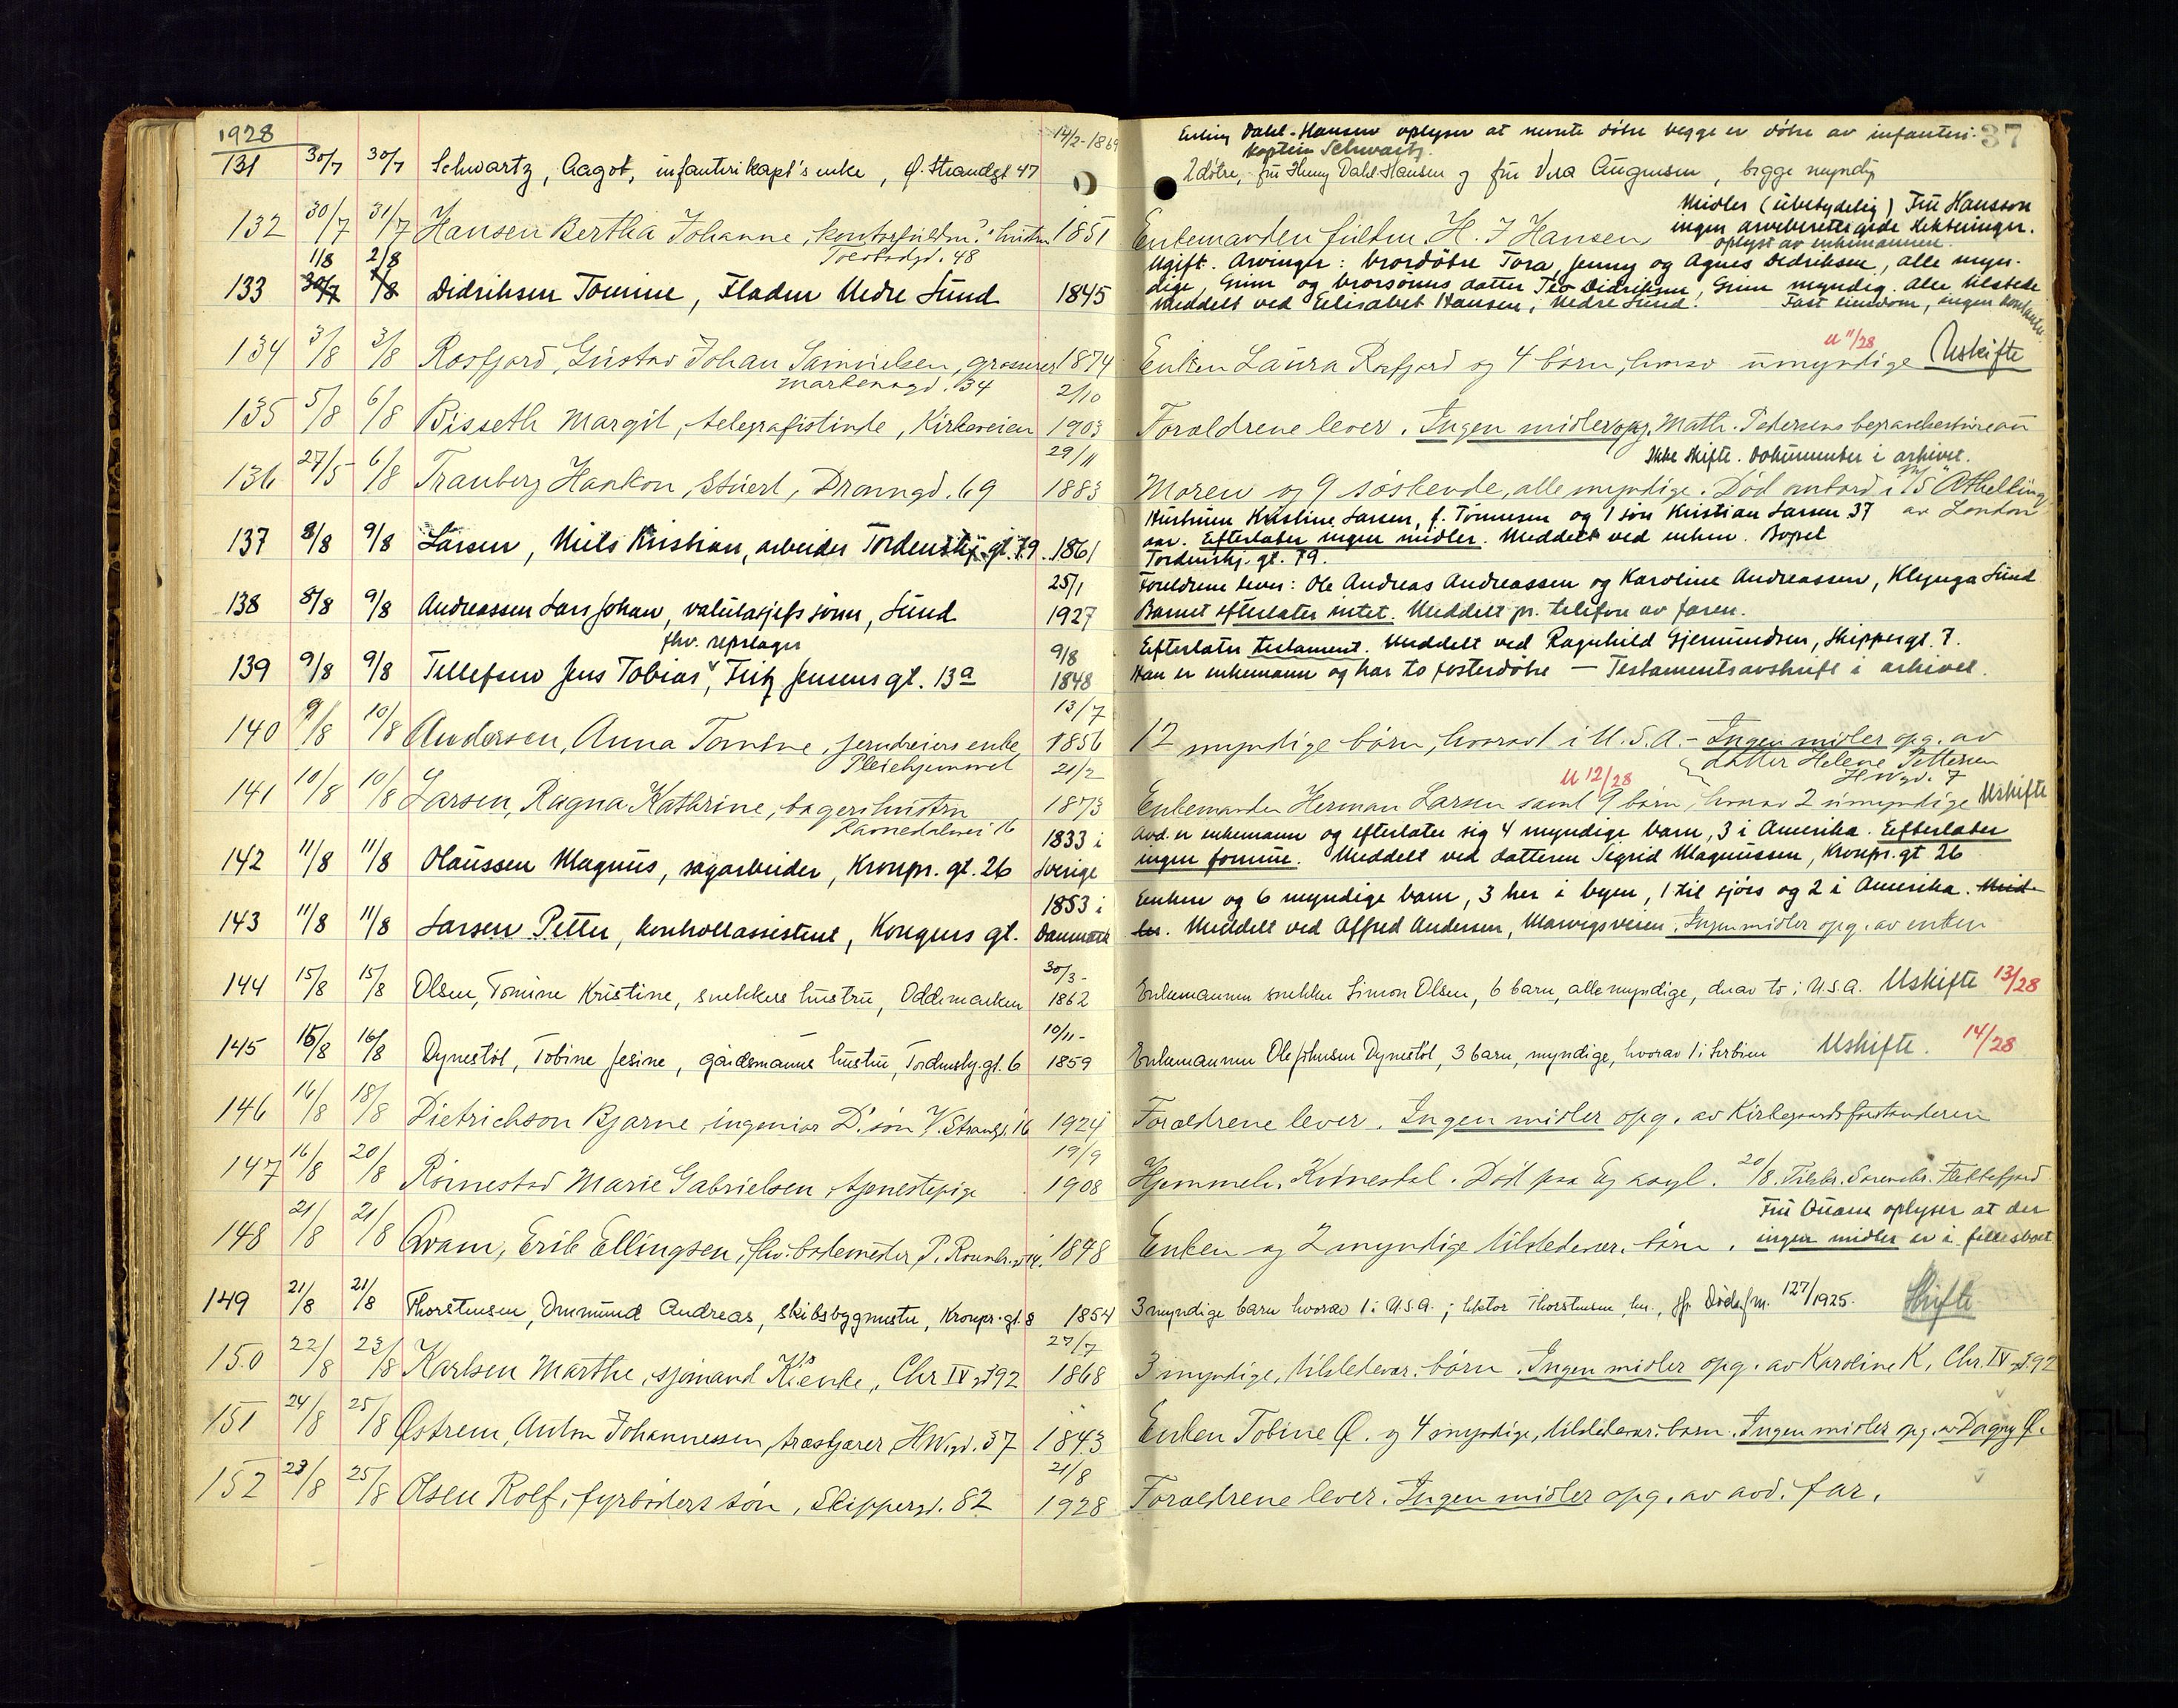 1928
37
14/2-1869
Erling Dahl-Hansen oplyser at nevnte døtre begge er døtre av infanteri-
kaptein Schwartz.
131 30/7 30/7 Schwartz, Aagot, infanterikapt's enke, Ø. Strandgt 47
2 døtre, fru Henny Dahl-Hansen og fru Vera Augensen, begge myndig
132 30/7 31/7 Hansen Bertha Johanne, kontorfuldm.s hustru 1851
Toldbodgd. 48
Enkemanden fuldm. H. J Hansen
Midler (ubetydelig) Fru Hansson
ingen arveberettigede slektninger.
oplyst av enkemannen.
1/8 2/8
133 30/7 1/8 Didriksen Tomine, Fladen Nedre Sund 1845
Ugift. Arvinger: brordøtre Tora, Jenny og Agnes Didriksen, alle myn-
dige, Grim og brorsønns datter Teo Didriksen, Grim myndig. Alle tilstede
Meddelt ved Elisabet Hansen, Nedre Sund. Fast eiendom, ingen kontanter
134 3/8 3/8 Rosfjord, Gustav Johan Samuelsen, grosserer 1874
Markensgd. 34
Enken Laura Rosfjord og 4 børn, hvorav umyndige Uskifte
U 11/28
2/10
135 5/8 6/8 Bisseth Margit, telegrafistinde, Kirkeveien 1903
Forældrene lever. Ingen midler opg. Math. Pedersens begravelsesbureau
29/11
136 27/5 6/8 Tranberg Haakon, stuert, Dronngd. 69 1883
Ikke skifte. Dokumenter i arkivet.
Moren og 9 søskende, alle myndige. Død ombord i M/S "Athelking
av London
137 8/8 9/8 Larsen, Niels Kristian, arbeider Tordenskj. gt. 79. 1861
Hustruen Kristine Larsen, f. Tønnesen og 1 søn Kristian Larsen 37
aar. Efterlater ingen midler. Meddelt ved enken. Bopel
Tordenskj. gt. 79.
25/1
138 8/8 9/8 Andreassen Lars Johan, valutasjefs sønn, Sund 1927
Foreldrene lever: Ole Andreas Andreassen og Karoline Andreassen, Sund
Barnet efterlater intet. Meddelt pr. telefon av faren.
fhv. repslager
9/8
139 9/8 9/8 Tellefsen Jens Tobias, Fritz Jensens gt. 13a 1848
Efterlater testament. Meddelt ved Ragnhild Gjermundsen, Skippergt. 7.
Han er enkemann og har to fosterdøtre – Testamentsavskrift i arkivet.
13/7
140 9/8 10/8 Andersen, Anna Tomine, jerndreiers enke 1856
Pleiehjemmet
12 myndige børn, hvorav 1 i U.S.A. – Ingen midler opg. av
datter Helene Pettersen
H Wgd. 7
21/2
141 10/8 10/8 Larsen, Ragna Kathrine, bagers hustru 1873
Ramedalsvei 16
U 12/28
Enkemanden Herman Larsen samt 9 børn, hvorav 2 umyndige Uskifte
142 11/8 11/8 Olaussen Magnus, sagarbeider, Kronpr. gt. 26 1833 i Sverige
Avd. er enkemann og efterlater sig 4 myndige barn, 3 i Amerika. Efterlater
ingen formue. Meddelt ved datteren Sigrid Magnussen, Kronpr. gt 26
143 11/8 11/8 Larsen Petter, kontrollassistent, Kongens gt. 1853 i Danmark
Enken og 6 myndige barn, 3 her i byen, 1 til sjøss og 2 i Amerika.
Meddelt ved Alfred Andersen, Marvigsveien. Ingen midler opg. av enken
30/3-
144 15/8 15/8 Olsen, Tomine Kristine, snekkers hustru, Oddemarken 1862
Enkemannen snekker Simon Olsen, 6 barn, alle myndige, derav to i U.S.A. Uskifte 13/28
10/11-
145 15/8 16/8 Dynestøl, Tobine Jesine, gårdsmanns hustru, Tordenskj. gt. 6 1859
Enkemannen Ole Johnsen Dynestøl, 3 barn, myndige, hvorav 1 i Serbien Uskifte. 14/28
146 16/8 18/8 Dietrichson Bjarne ingeniør D.' søn V. Strandgt. 16 1924
Forældrene lever. Ingen midler opg. av Kirkegaardsforstanderen
19/9
147 16/8 20/8 Rømestad Marie Gabrielsen, tjenestepige 1908
Hjemmeh. Kvinesdal. Død paa Eg asyl. 20/8. Tilskr. Sorenskr. Flekkefjord
148 21/8 21/8 Qvam, Erik Ellingsen, fhv. bademester P. 1848
Enken og 2 myndige tilstedevær. børn.
Fru Qvam oplyser at der
ingen midler er i fellesboet
149 21/8 21/8 Thorstensen, Ommund Andreas, skibsbyggmester, Kronpr. gt. 8 1854
3 myndige barn hvorav 1 i U.S.A.; lektor Thorstensen her., jfr. Dødsfm. 127/1925. Skifte
27/7
150 22/8 23/8 Karlsen Marthe, sjømand K's enke, Chr IV gt 92 1868
3 myndige, tilstedevær. børn. Ingen midler opg. av Karoline K, Chr. IV gt. 92
151 24/8 25/8 Østrem, Anton Johannessen, træskjærer, H Wgd. 37 1843
Enken Tobine Ø. og 4 myndige, tilstedevær. børn. Ingen midler opg. av Dagny Ø.
21/8
152 23/8 25/8 Olsen Rolf, fyrbøders søn, Skippergd. 82 1928
Forældrene lever. Ingen midler opg. av avd. far.